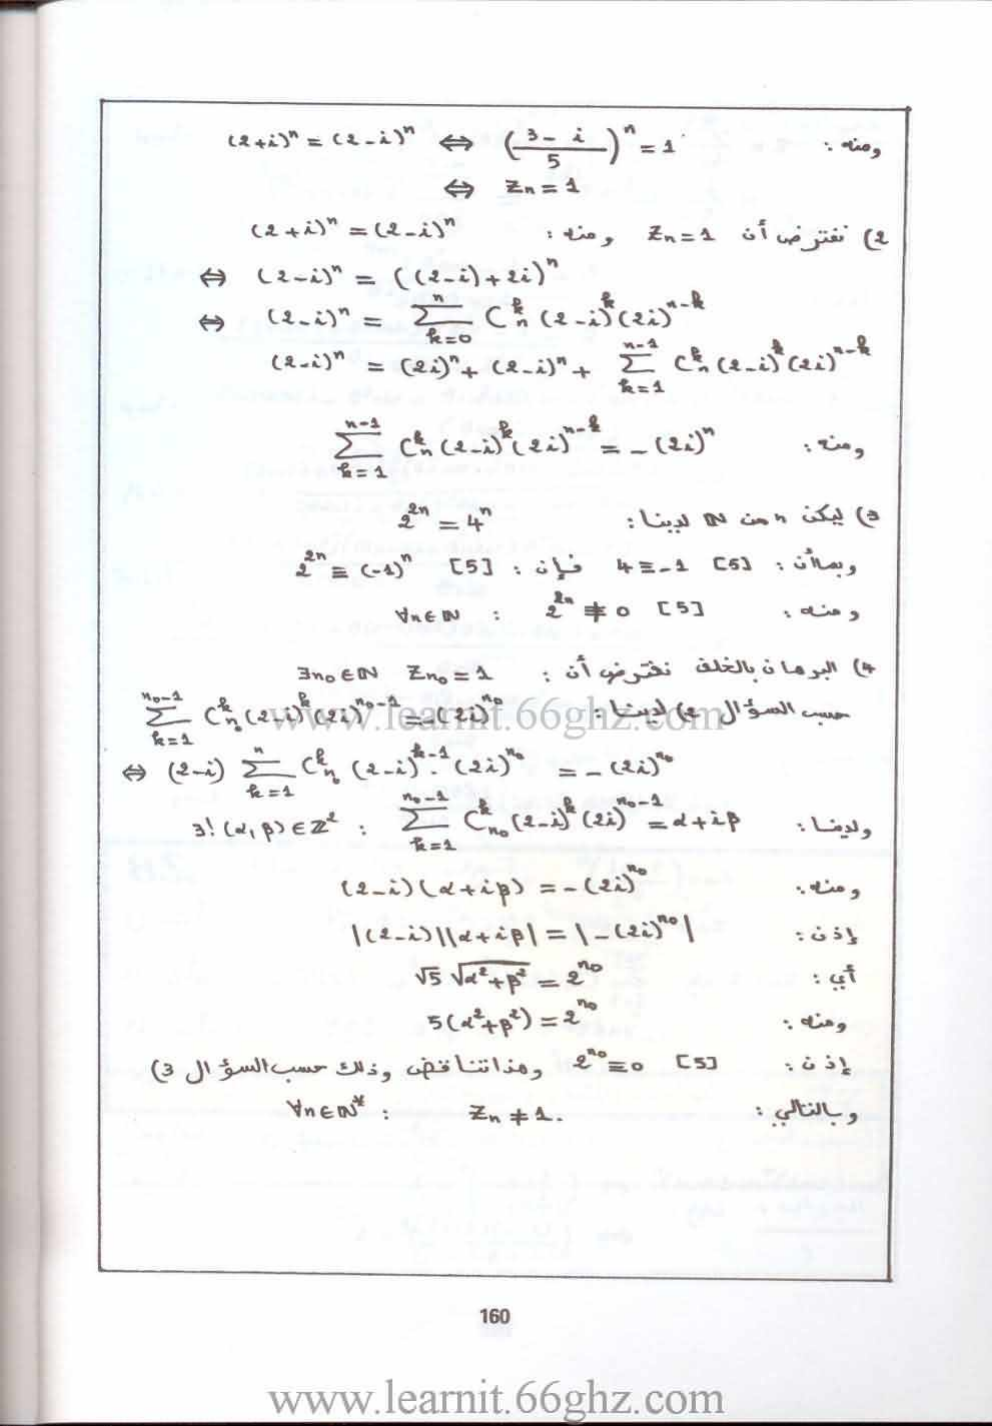 ومنه : (2+i)ⁿ = (2-i)ⁿ ⇔ ((3- i)/5)ⁿ = 1
⇔ Zn = 1
2) نفترض أن Zn=1 ومنه : (2+i)ⁿ = (2-i)ⁿ
⇔ (2-i)ⁿ = ((2-i)+2i)ⁿ
⇔ (2-i)ⁿ = \sum_{k=0}^{n} C_n^k (2-i)^k (2i)^{n-k}
(2-i)ⁿ = (2i)ⁿ + (2-i)ⁿ + \sum_{k=1}^{n-1} C_n^k (2-i)^k (2i)^{n-k}
ومنه : \sum_{k=1}^{n-1} C_n^k (2-i)^k (2i)^{n-k} = -(2i)ⁿ
3) ليكن n من ℕ لدينا : 2^{2n} = 4ⁿ
وبماأن : 4 ≡ -1 [5] فإن : 2^{2n} ≡ (-1)ⁿ [5]
ومنه : ∀n∈ℕ : 2^{2n} ≢ 0 [5]
4) البرهان بالخلف نفترض أن : ∃n₀∈ℕ Zn₀ = 1
حسب السؤال 2) لدينا : \sum_{k=1}^{n₀-1} C_{n₀}^k (2-i)^k (2i)^{n₀-1} = -(2i)^{n₀}
www.learnit.66ghz.com
⇔ (2-i) \sum_{k=1}^{n} C_{n₀}^k (2-i)^{k-1} . (2i)^{n₀} = -(2i)^{n₀}
ولدينا : ∃! (α, β) ∈ ℤ² : \sum_{k=1}^{n₀-1} C_{n₀}^k (2-i)^k (2i)^{n₀-1} = α+iβ
ومنه : (2-i)(α+iβ) = -(2i)^{n₀}
إذن : |(2-i)||α+iβ| = |-(2i)^{n₀}|
أي : √5 √(α²+β²) = 2^{n₀}
ومنه : 5(α²+β²) = 2^{n₀}
إذن : 2^{n₀} ≡ 0 [5] وهذا تناقض وذلك حسب السؤال 3)
وبالتالي : ∀n∈ℕ* : Zn ≠ 1.
160
www.learnit.66ghz.com